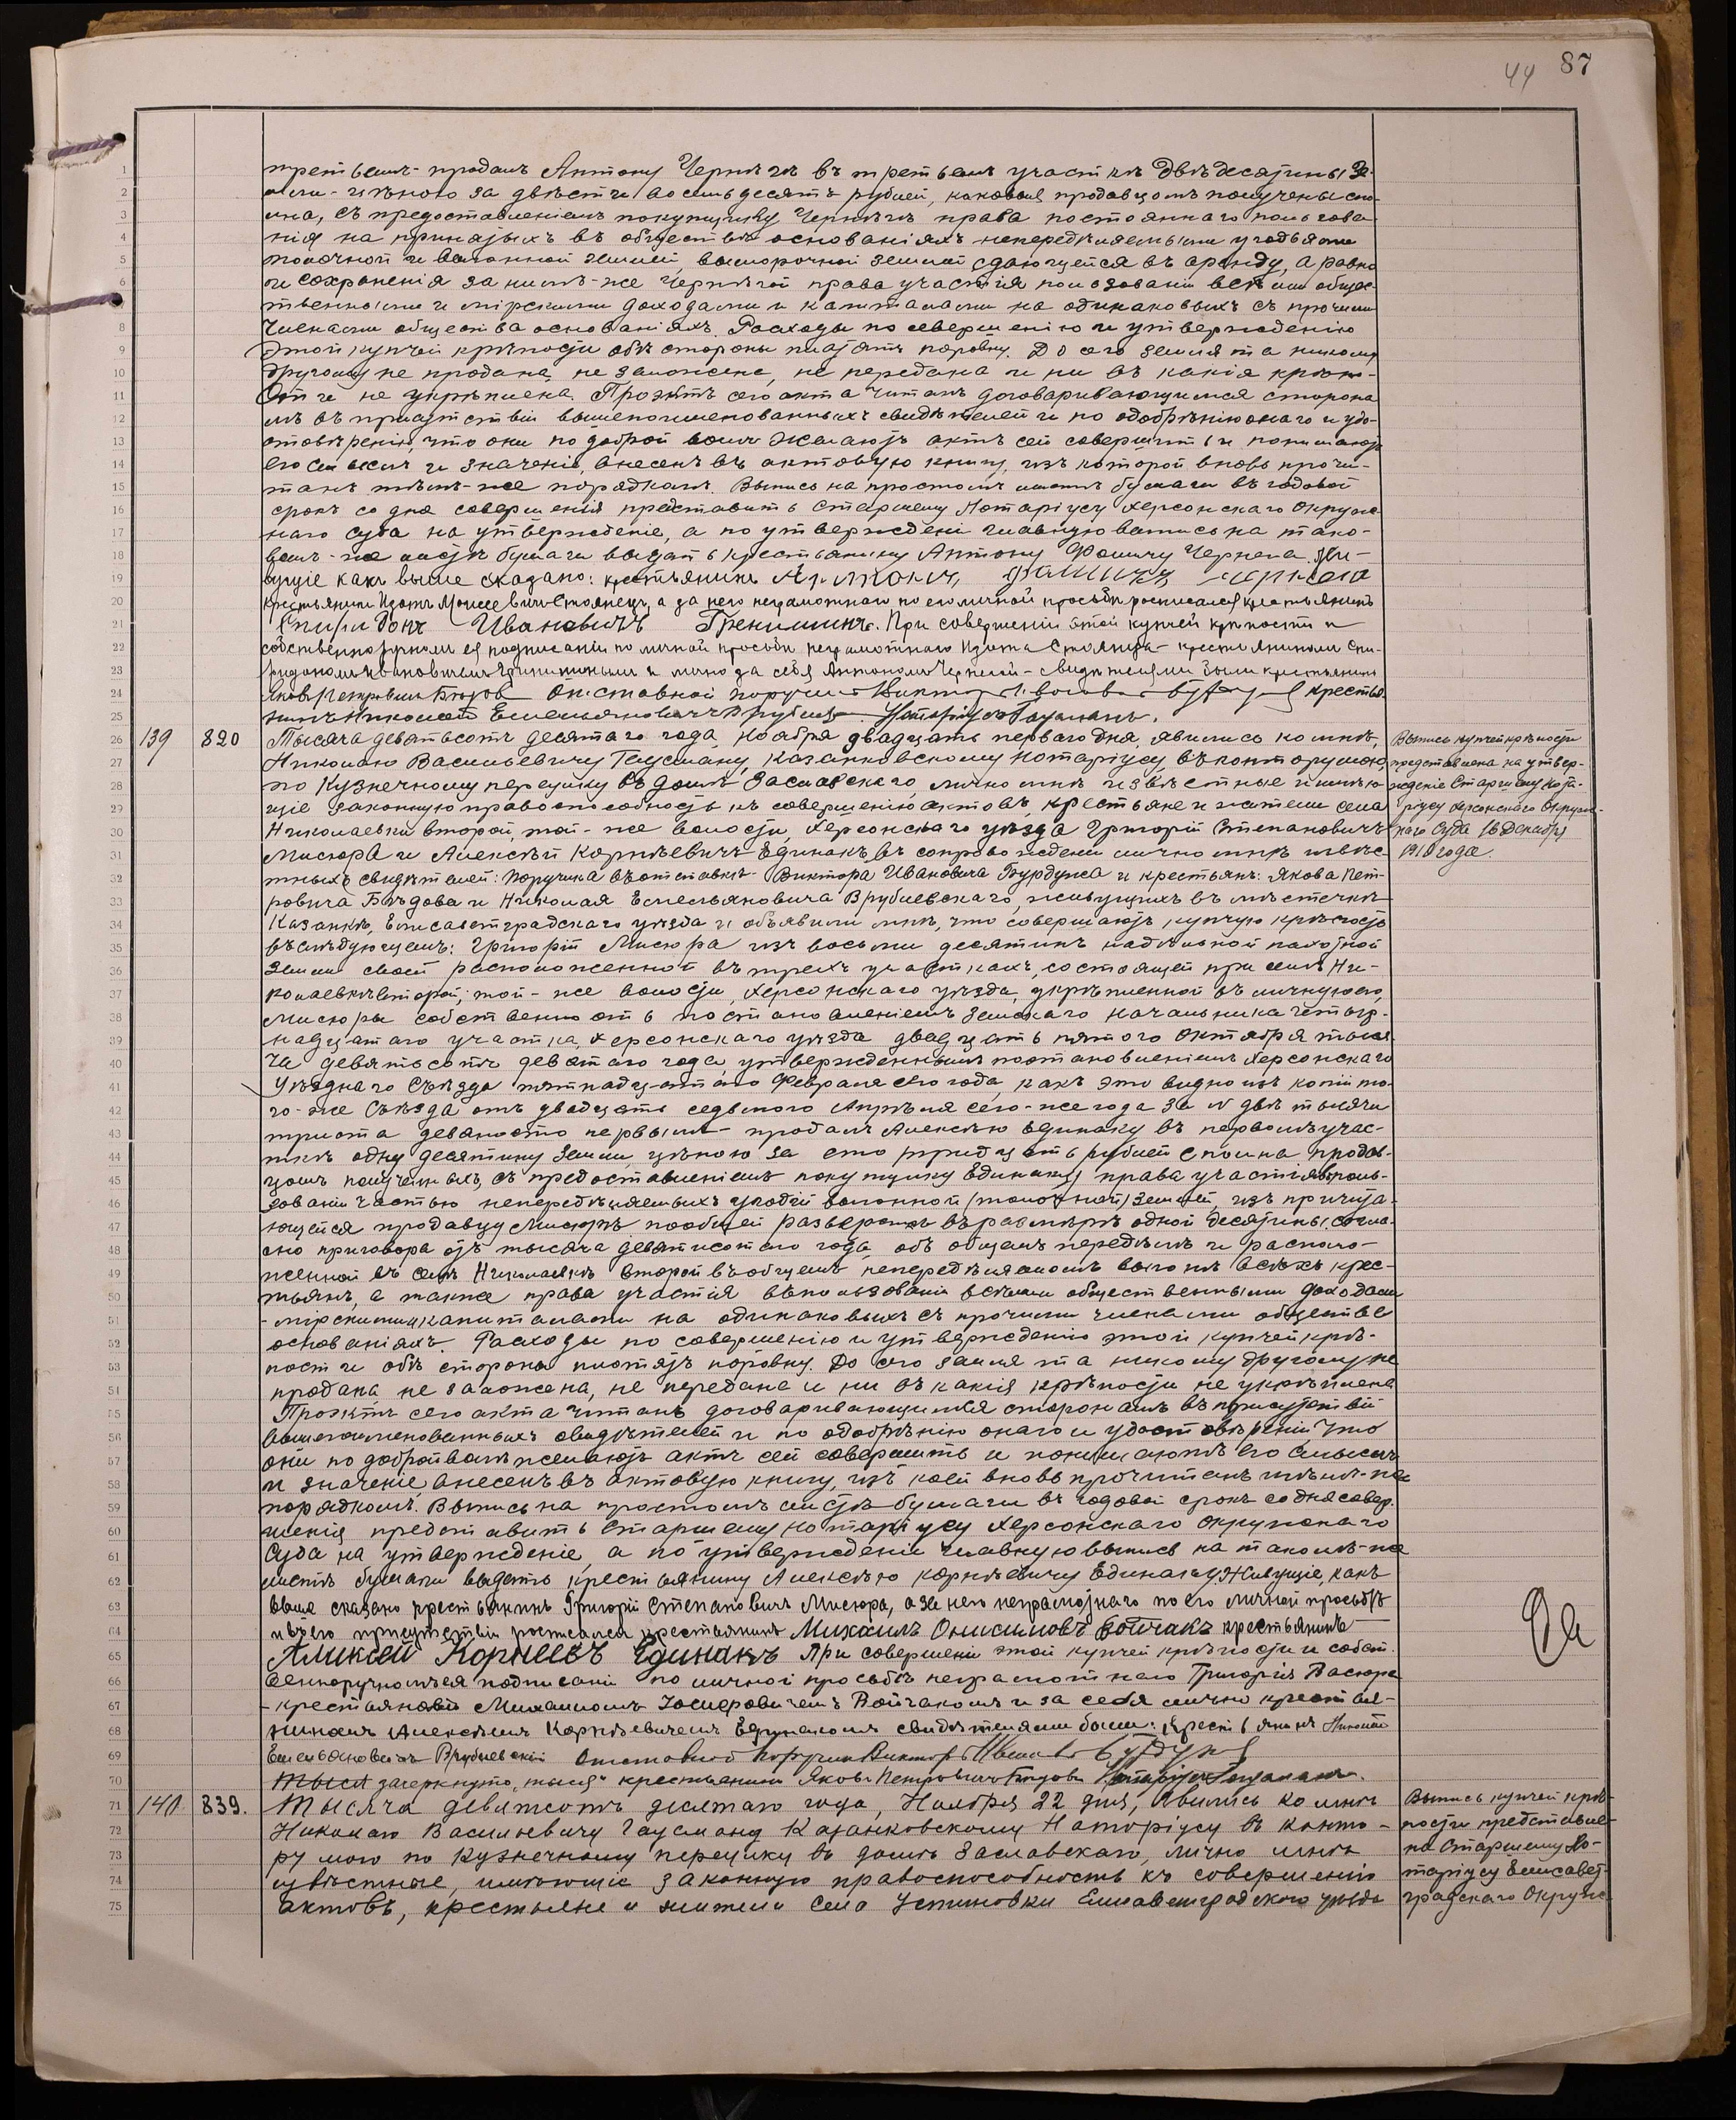 44 87
третьемъ - продалъ Антону Чернѣгѣ въ третьемъ участкѣ двѣ десятины зе-
мли - цѣною за двѣсти восемьдесятъ рублей, каковыя продавцомъ получены спо-
лна, съ предоставленіемъ покупщику Чернѣгѣ права постояннаго пользова-
нія на принятыхъ въ обществѣ основаніяхъ непередѣляемыми угодьями
толочной и выгонной землей, выморочной землей сдающуейся въ аренду, а равно
и сохраненія за нимъ-же Чернѣгой права участія пользованіи всѣми общес-
твенными и мірскими доходами и капиталами на одинаковыхъ съ прочими
членами общества основаніяхъ. Расходы по совершенію и утвержденію
этой купчей крѣпости обѣ стороны платятъ поровну. До сего земля та никому
другому не продана, не заложена, не передана и ни въ какія крѣпо-
сти не укрѣплена. Проэктъ сего акта читанъ договаривающимся сторона-
мъ въ присутствіи вышепоименованныхъ свидѣтелей и по одобрѣнію онаго и удо-
стовѣреніи, что они по доброй волѣ желаютъ актъ сей совершить и понимаютъ
его смыслъ и значеніе, внесенъ въ актовую книгу, изъ которой вновь прочи-
танъ тѣмъ-же порядкомъ. Выпись на простомъ листѣ бумаги въ годовой
срокъ со дня совершенія представить Старшему Нотаріусу Херсонскаго Окруж-
наго Суда на утвержденіе, а по утвержденіи главную выпись на тако-
вомъ-же листѣ бумаги выдать крестьянину Антону Фомичу Чернега. Жи-
вущіе какъ выше сказано: крестьянинъ Антонъ Фомичъ Чернега
крестьянинъ Изотъ Моисеевичъ Стоянецъ, а за него неграмотнаго по его личной просьбѣ росписался крестьянинъ
Спиридонъ Ивановичъ Гренишинъ. При совершеніи этой купчей крѣпости и
собственноручномъ ея подписаніи по личной просьбѣ неграмотнаго Изота Стоянца - крестьяниномъ Спи-
ридономъ Ивановичемъ Гренишинымъ и лично за себя Антономъ Чернегой - свидѣтелями были крестьянинъ
Яковъ Петровичъ Бѣдовъ Отставной поручикъ Викторъ Ивановъ Бурдуновъ крестья-
нинъ Николай Емельяновичъ Врублевскій. Нотаріусъ Гаусманъ.
139 820 Тысяча девятьсотъ десятаго года, Ноября двадцать перваго дня, явились ко мнѣ,
Николаю Васильевичу Гаусману, Казанковскому Нотаріусу, въ контору мою,
по Кузнечному переулку въ домѣ Заславскаго, лично мнѣ извѣстные и имѣю-
щіе законную правоспособность къ совершенію актовъ, крестьяне и жители села
Николаевки второй, той-же волости, Херсонскаго уѣзда Григорій Степановичъ
Мисюра и Алексѣй Корнѣевичъ Единакъ, въ сопровожденіи лично мнѣ извѣс-
тныхъ свидѣтелей: поручика въ отставкѣ - Виктора Ивановича Бурдуна и крестьянъ: Якова Пет-
ровича Бѣдова и Николая Емельяновича Врублевскаго, живущихъ въ мѣстечкѣ
Казанкѣ, Елисаветградскаго уѣзда и объявили мнѣ, что совершаютъ купчую крѣпость
въ слѣдующемъ: Григорій Мисюра изъ восьми десятинъ надѣльной пахотной
земли своей расположенной въ трехъ участкахъ, состоящей при селѣ Ни-
колаевкѣ второй, той-же волости, Херсонскаго уѣзда, укрѣпленной въ личную его,
Мисюры собственность постановленіемъ Земскаго Начальника четыр-
надцатаго участка, Херсонскаго уѣзда двадцать пятого Октября тыся-
ча девятьсотъ девятаго года, утвержденнымъ постановленіемъ Херсонскаго
Уѣзднаго Съѣзда пятнадцатаго Февраля сего года, какъ это видно изъ копіи то-
го-же Съѣзда отъ двадцать седьмого Апрѣля сего-же года за № двѣ тысячи
триста девяносто первымъ - продалъ Алексѣю Единаку въ первомъ учас-
ткѣ одну десятину земли, цѣною за сто тридцать рублей сполна продав-
цомъ полученныхъ, съ предоставленіемъ покупщику Единаку права участія въ поль-
зованіи частью непередѣляемыхъ угодій выгонной (толочной) землей, изъ причита-
ющейся продавцу Мисюрѣ пообщей разверсткѣ въ размѣрѣ одной десятины, согла-
сно приговора отъ тысяча девятисотаго года, объ общемъ передѣлѣ и распол-
женной въ селѣ Николаевкѣ второй въ общемъ непередѣляемомъ выгонѣ всѣхъ крес-
тьянъ, а также права участія въ пользованіи всѣми общественными доходами
- мірскими и капиталами на одинаковыхъ съ прочими членами общества
основаніяхъ. Расходы по совершенію и утвержденію этой купчей крѣ-
пости обѣ стороны платятъ поровну. До сего земля та никому другому не
продана, не заложена, не передана и ни въ какія крѣпости не укрѣплена
Проэктъ сего акта читанъ договаривающимся сторонамъ въ присутствіи
вышепоименованныхъ свидѣтелей и по одобрѣнію онаго и удостовѣреніи что
они по доброй волѣ желаютъ актъ сей совершить и понимаютъ его смыслъ
и значеніе, внесенъ въ актовую книгу, изъ коей вновь прочитанъ тѣмъ-же
порядкомъ. Выпись на простомъ листѣ бумаги въ годовой срокъ со дня совер-
шенія представить Старшему Нотаріусу Херсонскаго Окружнаго
Суда на утвержденіе, а по утвержденіи главную выпись на такомъ-же
листѣ бумаги выдать крестьянину Алексѣю Корнѣевичу Единаку. Живущіе, какъ
выше сказано крестьянинъ Григорій Степановичъ Мисюра, а за него неграмотнаго по его личной просьбѣ
и въ его присутствіи росписался крестьянинъ Михаилъ Онисимовъ Войчакъ крестьянинъ
Аликсей Корнеевъ Единакъ При совершеніи этой купчей крѣпости и собст-
венноручномъ ея подписаніи по личной просьбѣ неграмотнаго Григорія Васюра
- крестьяниномъ Михаиломъ Іосифовичемъ Войчакомъ и за себя лично крестья-
ниномъ Алексѣемъ Корнѣевичемъ Единакомъ свидѣтелями были: Крестьянинъ Николай
Емельяновичъ Врублевскій Отставной поручикъ Викторъ Ивановъ Бурдунъ
тыся зачеркнуто "тыся" крестьянинъ Яковъ Петровичъ Бѣдовъ Нотаріусъ Гаусманъ.
140 839. Тысяча девятсотъ десятаго года, Ноября 22 дня, явились ко мнѣ
Николаю Васильевичу Гаусману Казанковскому Нотаріусу въ конто-
ру мою по Кузнечному переулку въ домѣ Заславскаго, лично мнѣ
извѣстные, имѣющіе законную правоспособность къ совершенію
актовъ, крестьяне и жители села Устиновки Елисаветградскаго уѣзда
Выпись купчей крѣпости
представлена на утвер-
жденіе Старшему Нота-
ріусу Херсонскаго Окруж-
наго Суда 16 Декабря
1910 года.
Выпись купчей крѣ-
пости представле-
на Старшему Но-
таріусу Елисавет-
градскаго Окружн